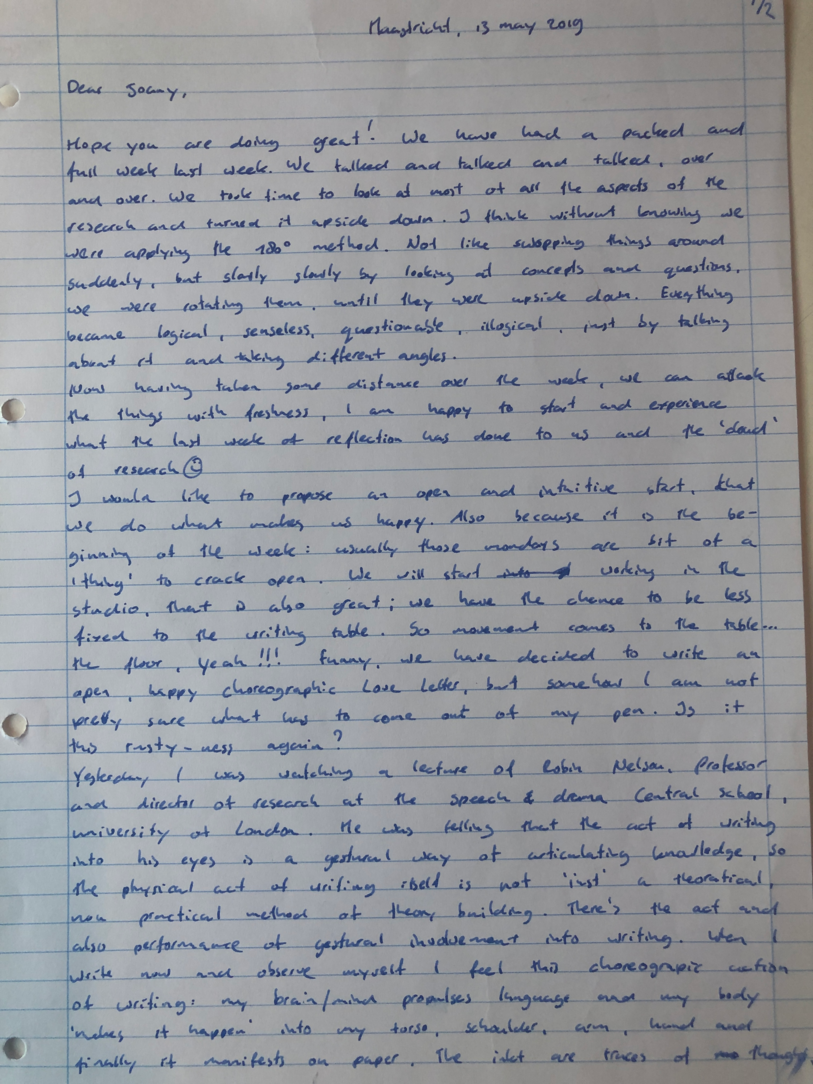 1/2
Maastricht, 13 may 2019
Dear Joany,
Hope you are doing great! We have had a packed and
full week last week. We talked and talked and talked, over
and over. We took time to look at most of all the aspects of the
research and turned it upside down. I think without knowing we
were applying the 180° method. Not like swopping things around
suddenly, but slowly slowly by looking at concepts and questions,
we were rotating them, until they were upside down. Everything
became logical, senseless, questionable, illogical, just by talking
about it and taking different angles.
Now having taken some distance over the week, we can attack
the things with freshness, I am happy to start and experience
what the last week of reflection has done to us and the 'cloud'
of research ☺
I would like to propose an open and intuitive start, that
we do what makes us happy. Also because it is the be-
ginning of the week: usually those mondays are bit of a
'thing' to crack open. We will start working in the
studio, that is also great; we have the chance to be less
fixed to the writing table. So movement comes to the table...
the floor, yeah!!! Funny, we have decided to write an
open, happy choreographic Love Letter, but somehow I am not
pretty sure what has to come out of my pen. Is it
this rusty-ness again?
Yesterday I was watching a lecture of Robin Nelson, Professor
and director of research at the speech & drama Central School,
university of London. He was telling that the act of writing
into his eyes is a gestural way of articulating knowledge, so
the physical act of writing itself is not 'just' a theoratical,
non practical method of theory building. There's the act and
also performance of gestural involvement into writing. When I
write now and observe myself I feel this choreograpic action
of writing: my brain/mind propulses language and my body
'makes it happen' into my torso, schoulder, arm, hand and
finally it manifests on paper. The inkt are traces of thoughts.